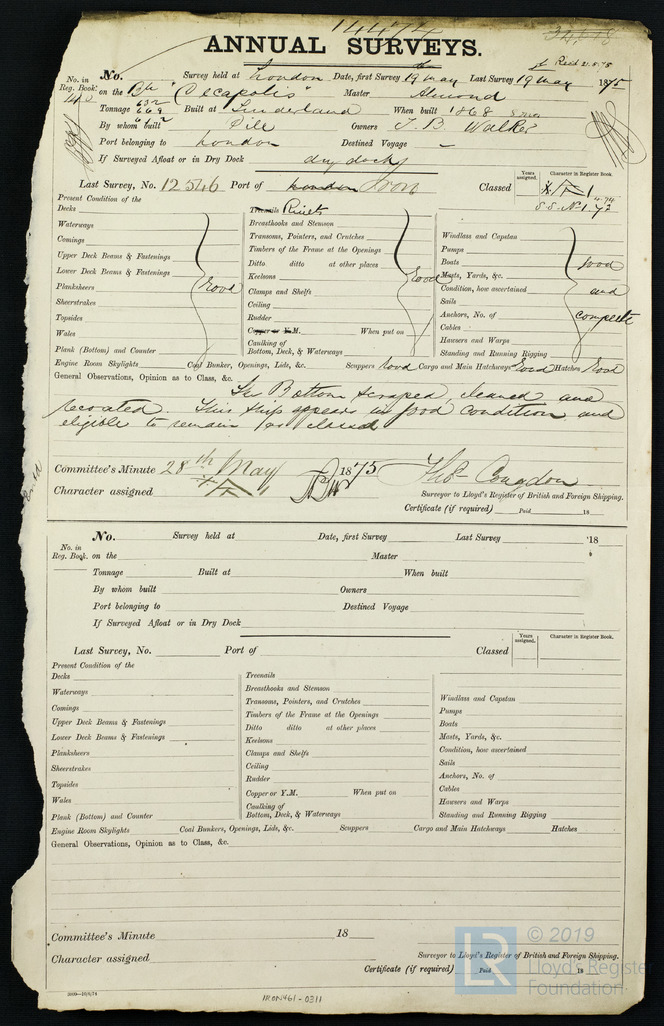 14474
ANNUAL SURVEYS.
No. in Reg. Book.
No. Survey held at London Date, first Survey 19 May Last Survey 19 May 1875
Recd 21.5.75
on the Bk "Decapolis" Master Almond
Tonnage 632 669 Built at Sunderland When built 1868
By whom built Pile Owners T. B. Walker
Port belonging to London Destined Voyage –
If Surveyed Afloat or in Dry Dock dry dock
Last Survey, No. 12546 Port of London Iron Classed
Years assigned. Character in Register Book.
S.S. No. 1. 72
Present Condition of the
Decks
Waterways
Comings
Upper Deck Beams & Fastenings
Lower Deck Beams & Fastenings
Planksheers Good
Sheerstrakes
Topsides
Wales
Plank (Bottom) and Counter
Treenails Rivets
Breasthooks and Stemson
Transoms, Pointers, and Crutches
Timbers of the Frame at the Openings
Ditto ditto at other places
Keelsons Good
Clamps and Shelfs
Ceiling
Rudder
Copper or Y.M. When put on
Caulking of Bottom, Deck, & Waterways
Windlass and Capstan
Pumps
Boats good
Masts, Yards, &c.
Condition, how ascertained and
Sails
Anchors, No. of complete
Cables
Hawsers and Warps
Standing and Running Rigging
Engine Room Skylights Coal Bunker, Openings, Lids, &c. Scuppers Good Cargo and Main Hatchways Good Hatches Good
General Observations, Opinion as to Class, &c.
The Bottom scraped, cleaned and
recoated. This ship appears in good condition and
eligible to remain as classed
Committee's Minute 28th May 1875 Thos Congdon
Character assigned
Surveyor to Lloyd's Register of British and Foreign Shipping.
Certificate (if required) Paid 18
No. in Reg. Book.
No. Survey held at Date, first Survey Last Survey 18
on the Master
Tonnage Built at When built
By whom built Owners
Port belonging to Destined Voyage
If Surveyed Afloat or in Dry Dock
Last Survey, No. Port of Classed
Years assigned. Character in Register Book.
Present Condition of the
Decks
Waterways
Comings
Upper Deck Beams & Fastenings
Lower Deck Beams & Fastenings
Planksheers
Sheerstrakes
Topsides
Wales
Plank (Bottom) and Counter
Treenails
Breasthooks and Stemson
Transoms, Pointers, and Crutches
Timbers of the Frame at the Openings
Ditto ditto at other places
Keelsons
Clamps and Shelfs
Ceiling
Rudder
Copper or Y.M. When put on
Caulking of Bottom, Deck, & Waterways
Windlass and Capstan
Pumps
Boats
Masts, Yards, &c.
Condition, how ascertained
Sails
Anchors, No. of
Cables
Hawsers and Warps
Standing and Running Rigging
Engine Room Skylights Coal Bunkers, Openings, Lids, &c. Scuppers Cargo and Main Hatchways Hatches
General Observations, Opinion as to Class, &c.
Committee's Minute 18
Character assigned
Surveyor to Lloyd's Register of British and Foreign Shipping.
Certificate (if required) Paid 18
IRON461-0311
LR © 2019
Lloyd's Register
Foundation